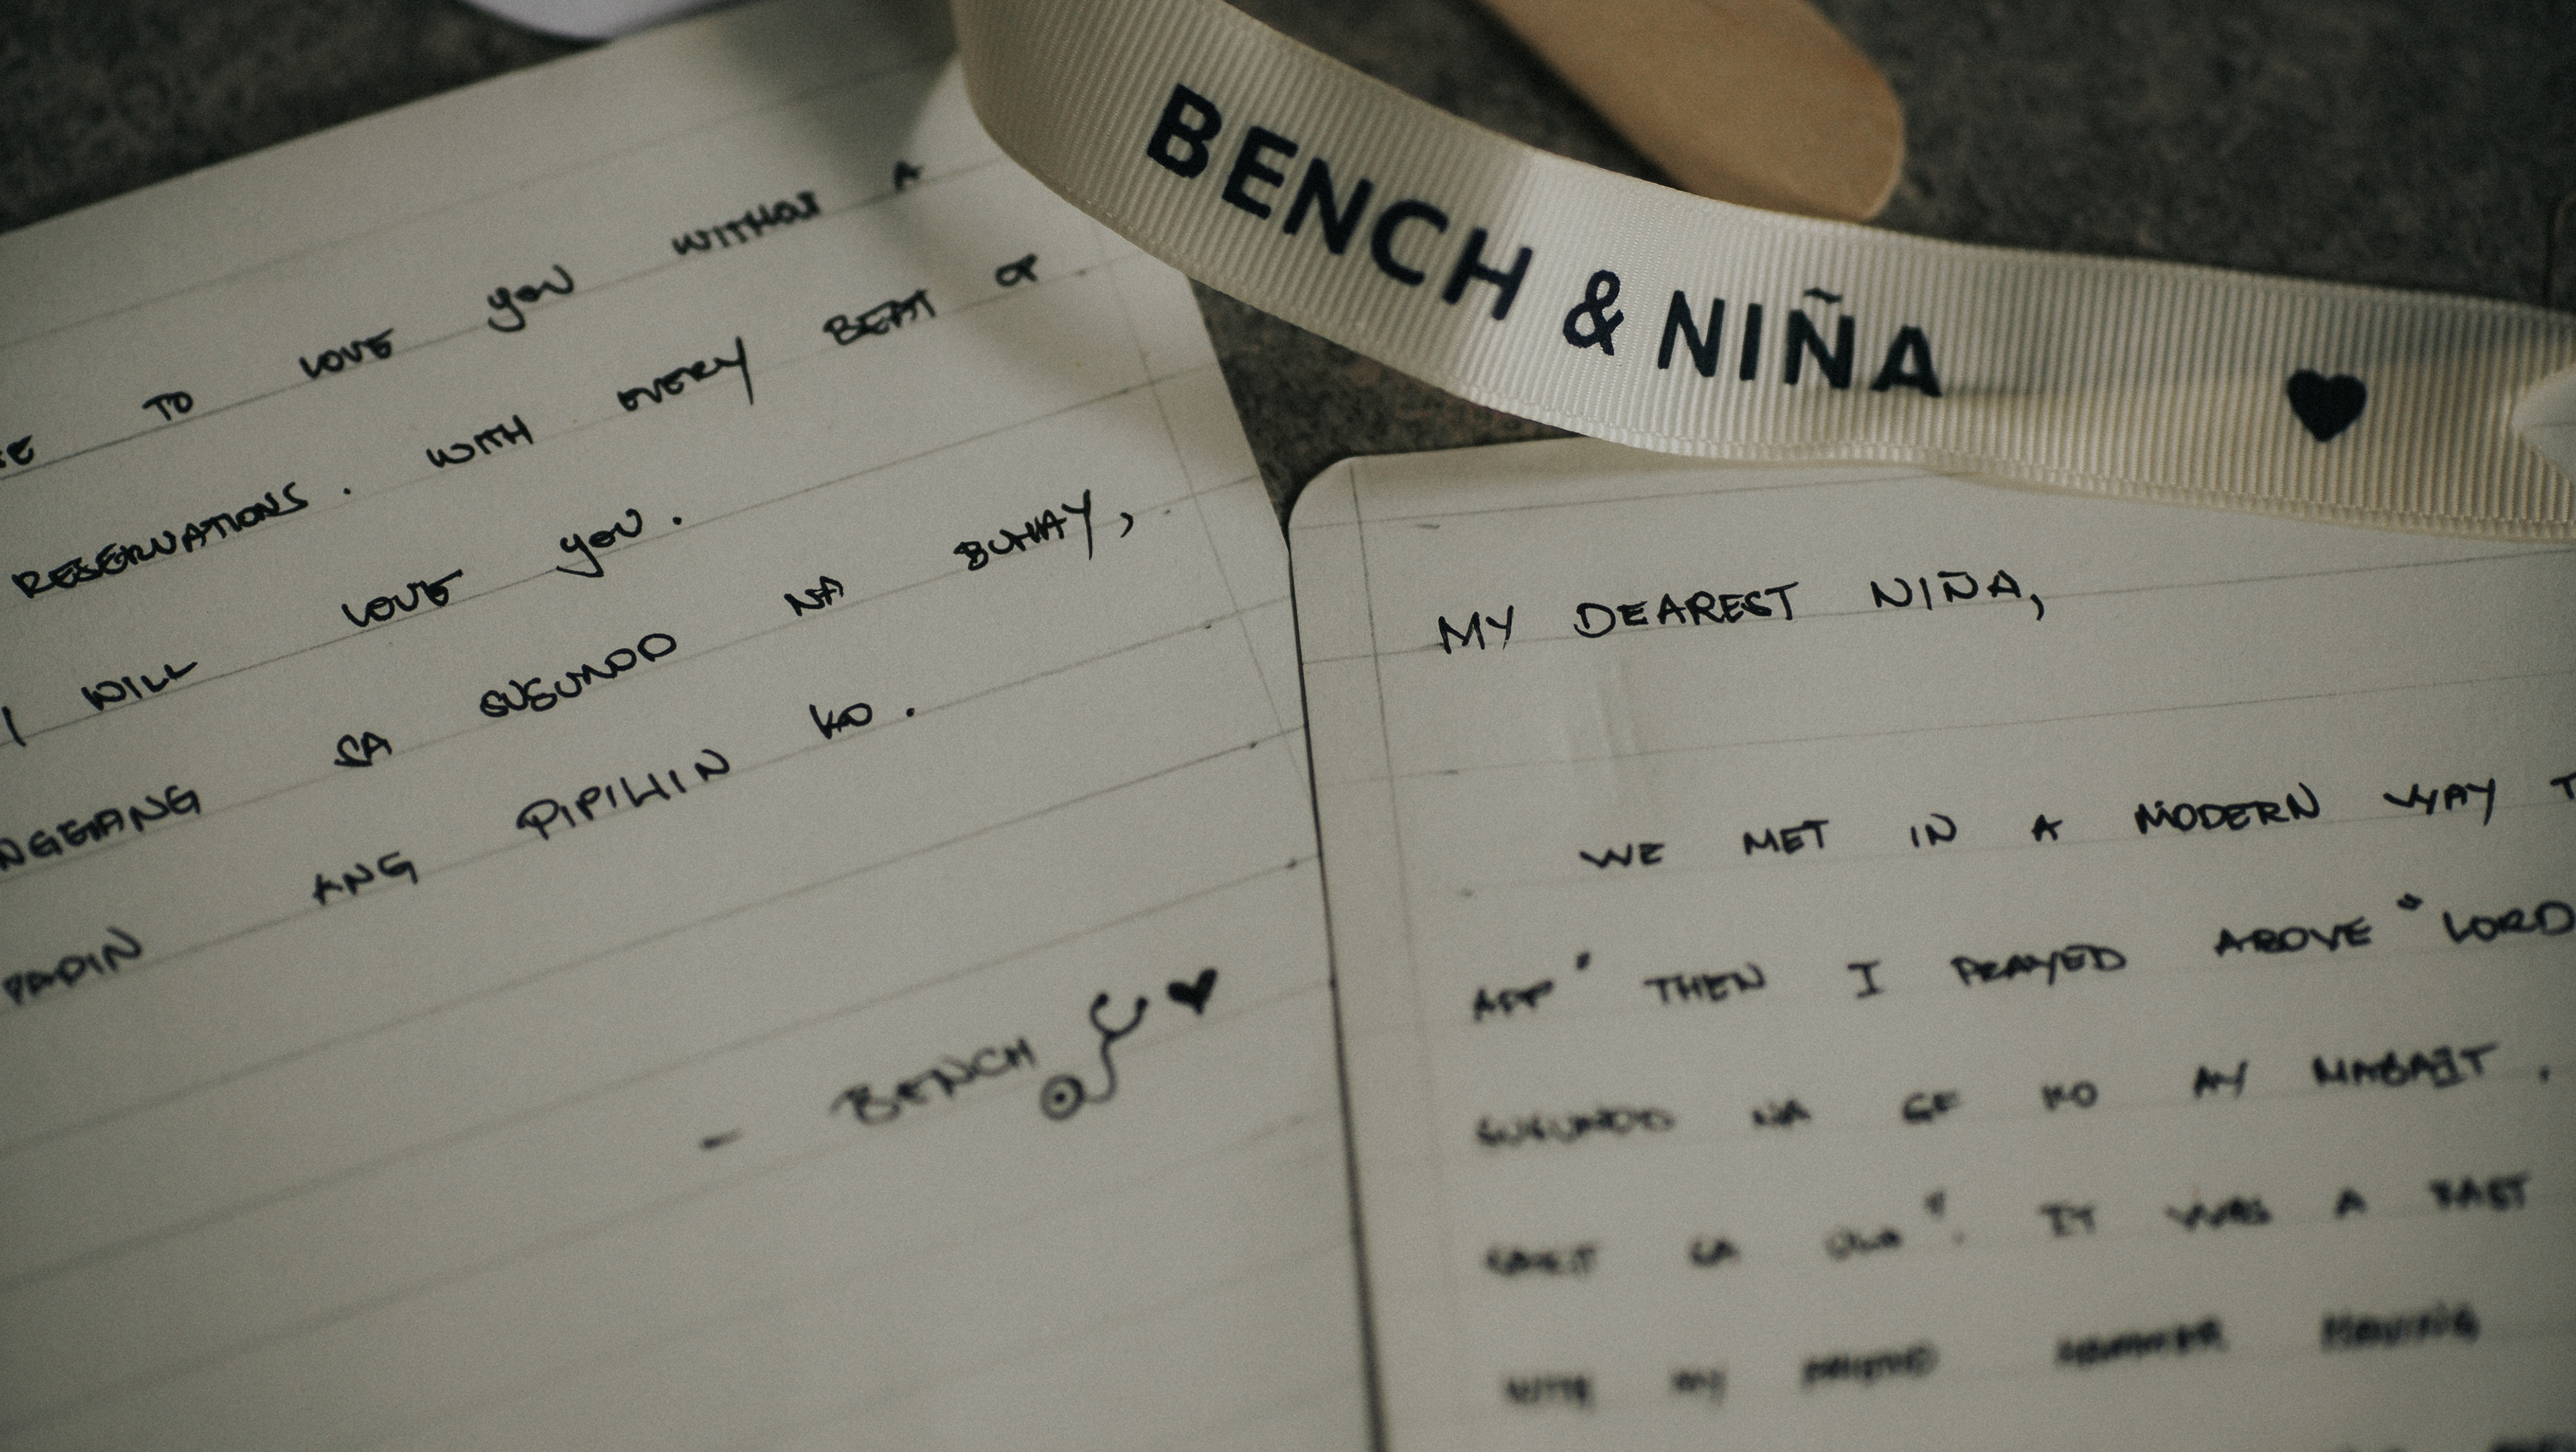 BENCH & NIÑA ♥
TO LOVE YOU WITHOUT A
RESERVATIONS. WITH EVERY BEAT OF
I WILL LOVE YOU.
SA SUSUNOD NA BUHAY,
ANG PIPILIIN KO.
- BENCH ♥
MY DEAREST NIÑA,
WE MET IN A MODERN WAY
APP" THEN I PRAYED ABOVE "LORD
SUSUNOD NA GF KO AY MABAIT.
SA". IT WAS A FAST
WITH MY HAVING